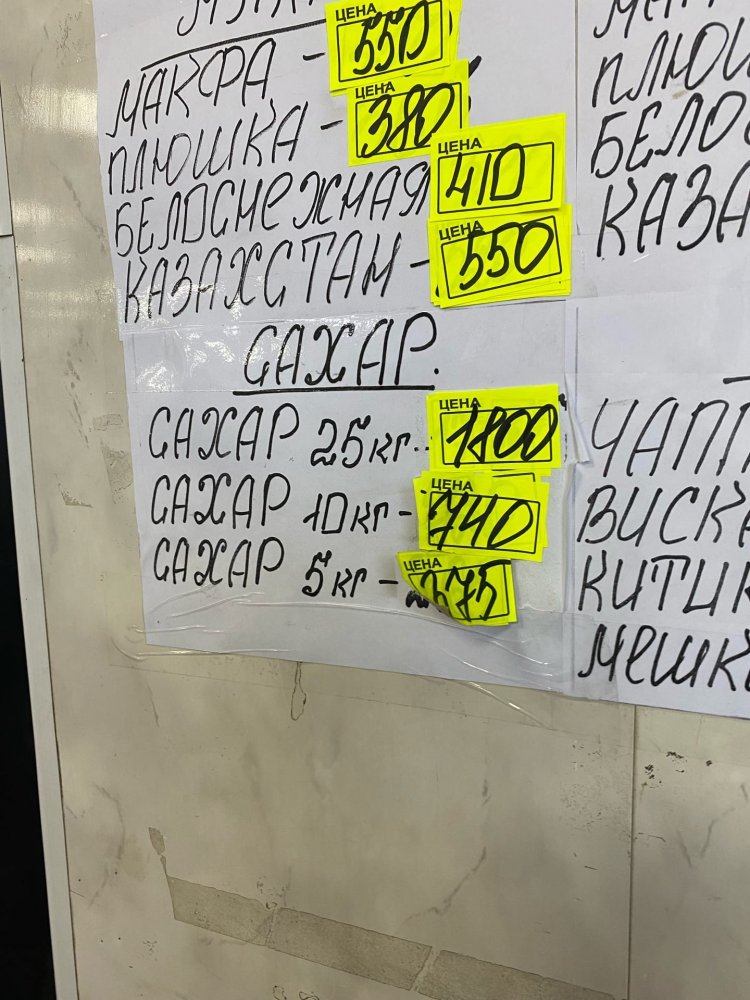 МАКФА - ЦЕНА 550
ПЛЮШКА - ЦЕНА 380
БЕЛОСНЕЖНАЯ ЦЕНА 410
КАЗАХСТАН - ЦЕНА 550
САХАР.
САХАР 25кг - ЦЕНА 1800
САХАР 10кг - ЦЕНА 740
САХАР 5кг - ЦЕНА 375
БЕЛО
КАЗА
ЧАПП
ВИСК
КИТИК
МЕШК